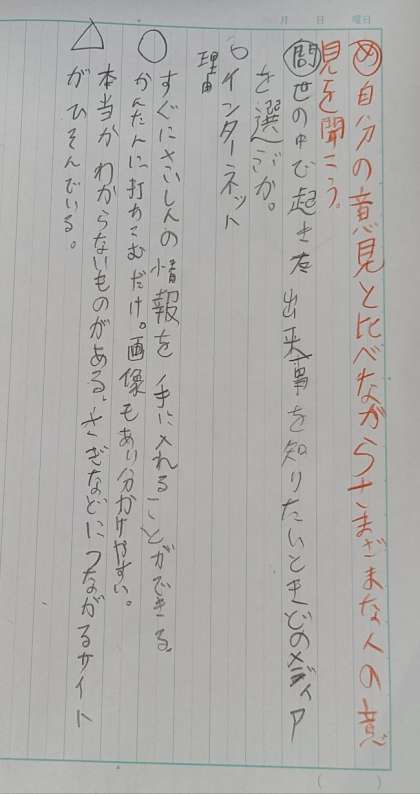 月 日 曜日
㋱自分の意見と比べながらさまざまな人の意
見を聞こう。
㋱問世の中で起きた出来事を知りたいときどのメディア
を選ぶか。
インターネット
理由
○
すぐにさいしんの情報を手に入れることができる。
かんたんに打ちこむだけ。画像もあり分かりやすい。
△
本当かわからないものがある。さぎなどにつながるサイト
がひそんでいる。